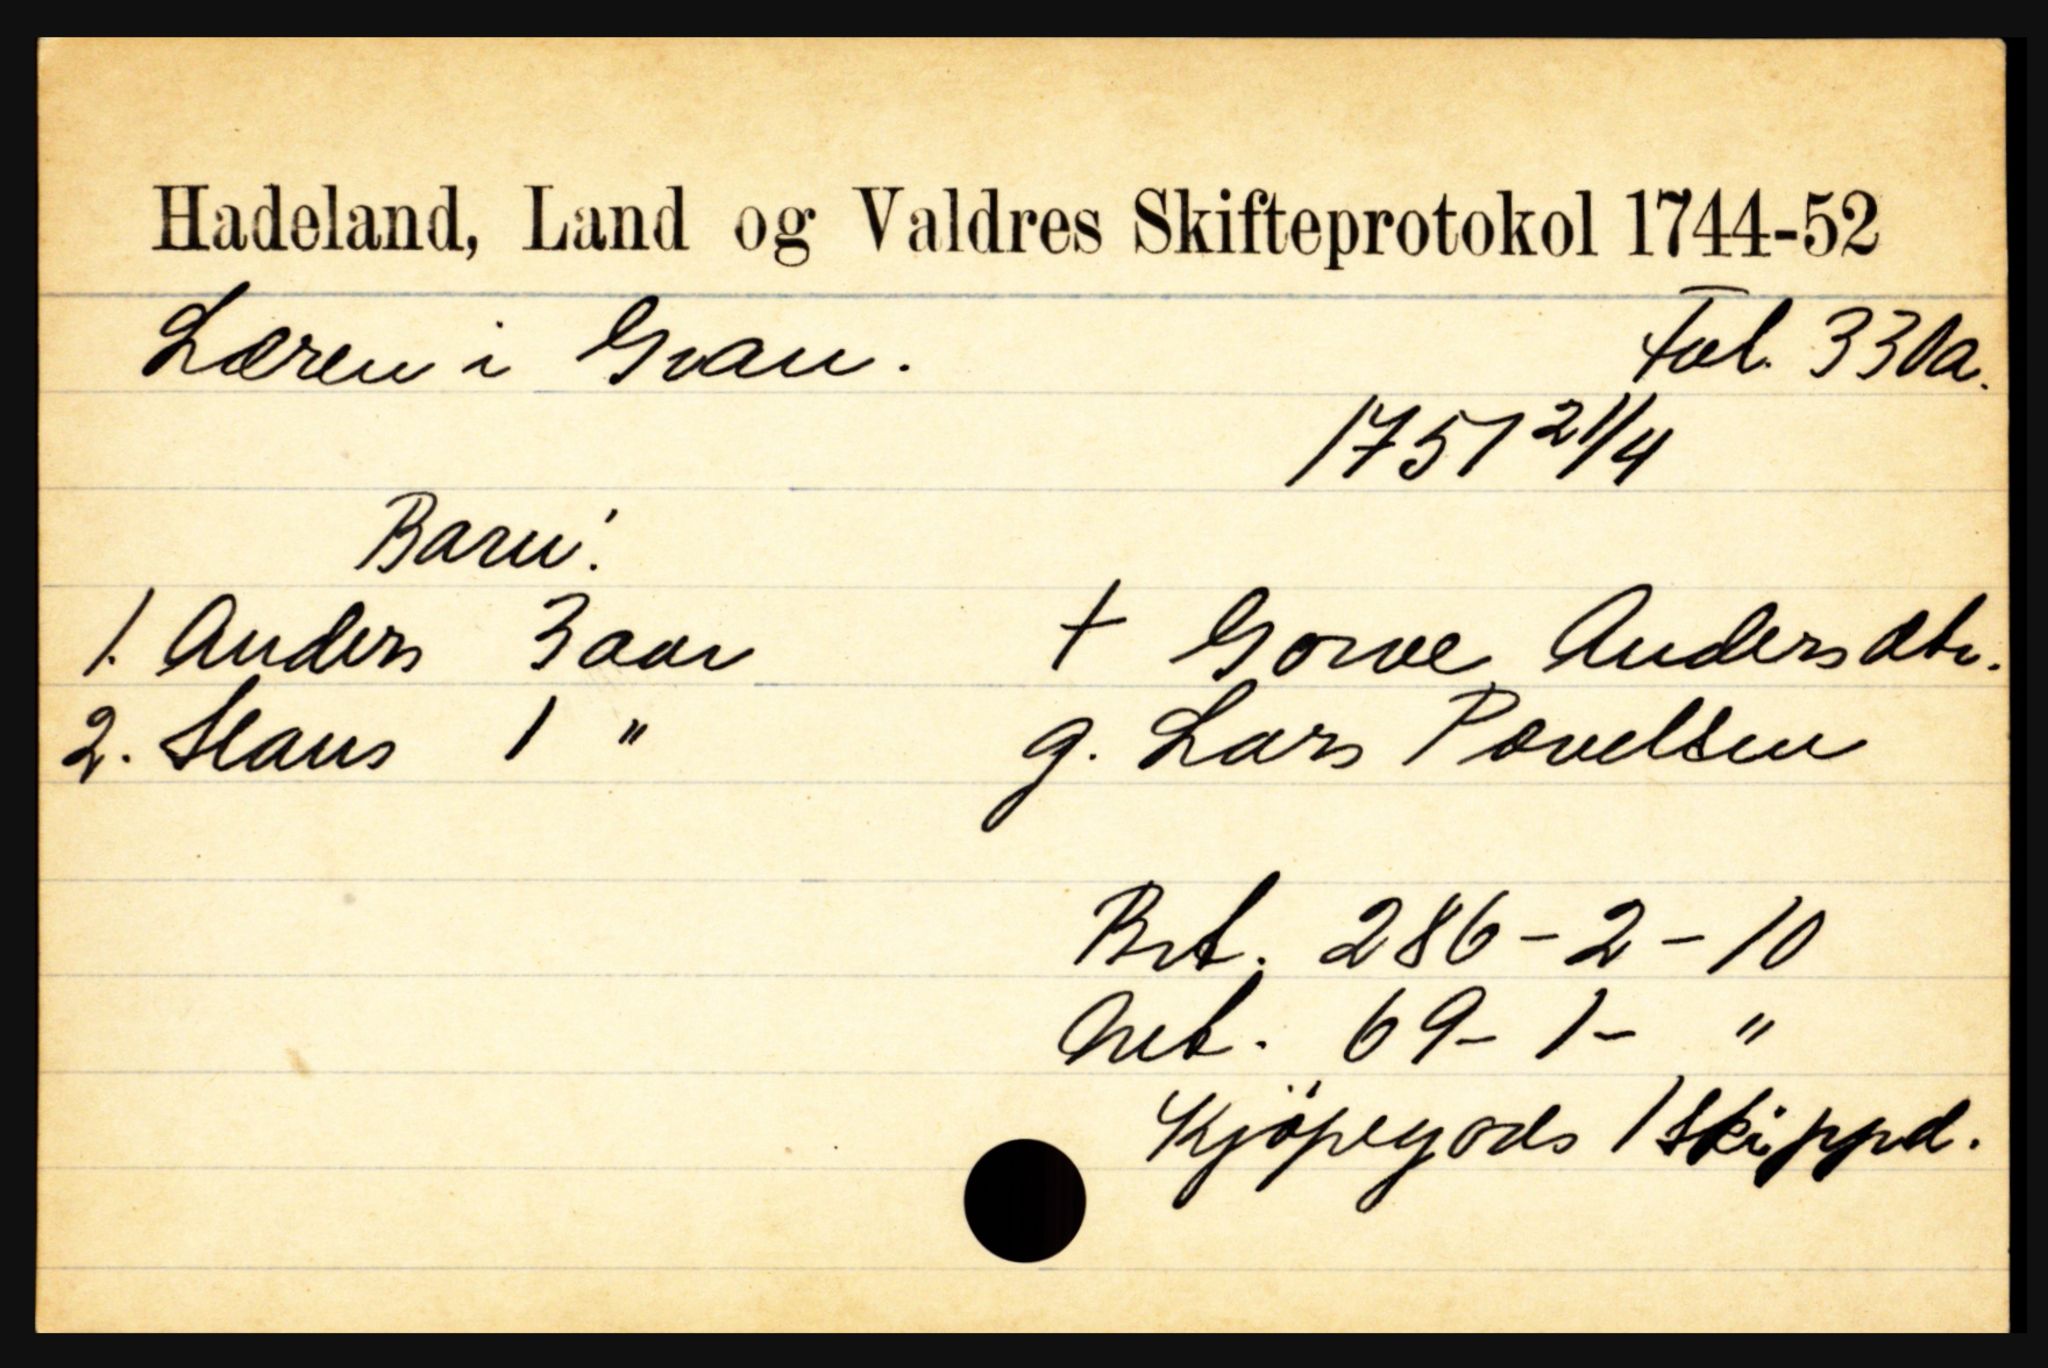 Hadeland, Land og Valdres Skifteprotokol 1744-52
Læren i Gran. Fol. 330a.
1751 21/4
Barn:
1. Anders 3 aar
2. Hans 1 "
† Gorve Andersdtr.
g. Lars Povelsen
Brt. 286-2-10
Net. 69-1- "
Kjöpegods 1 Skippd.